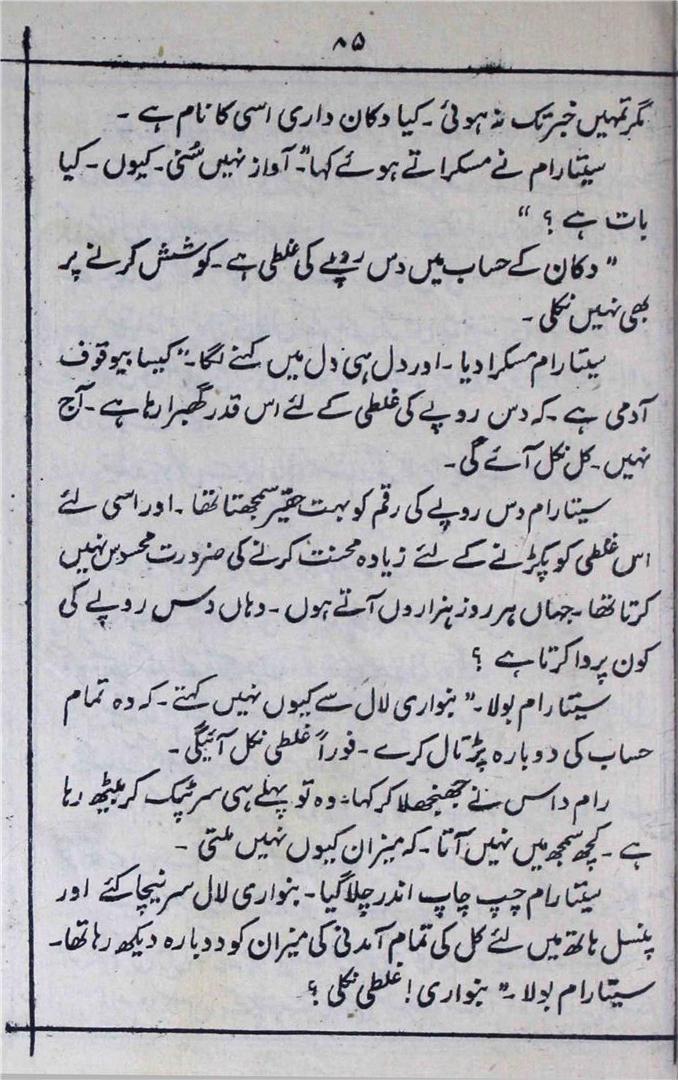 ۸۵
مگر تمہیں خبر تک نہ ہوئی ۔ کیا دکان داری اسی کا نام ہے ۔
سیتا رام نے مسکراتے ہوئے کہا "۔ آواز نہیں سُنی ۔ کیوں ۔ کیا
بات ہے ؟ "
" دکان کے حساب میں دس روپے کی غلطی ہے ۔ کوشش کرنے پر
بھی نہیں نکلی ۔
سیتا رام مسکرا دیا ۔ اور دل ہی دل میں کہنے لگا ۔ " کیسا بیوقوف
آدمی ہے ۔ کہ دس روپے کی غلطی کے لئے اس قدر گھبرا رہا ہے ۔ آج
نہیں ۔ کل نکل آئے گی ۔
سیتا رام دس روپے کی رقم کو بہت حقیر سمجھتا تھا ۔ اور اسی لئے
اس غلطی کو پکڑنے کے لئے زیادہ محنت کرنے کی ضرورت محسوس نہیں
کرتا تھا ۔ جہاں ہر روز ہزاروں آتے ہوں ۔ وہاں دس روپے کی
کون پروا کرتا ہے ؟
سیتا رام بولا ۔ " بنواری لال سے کیوں نہیں کہتے ۔ کہ وہ تمام
حساب کی دوبارہ پڑتال کرے ۔ فوراً غلطی نکل آئیگی ۔
رام داس نے جھنجھلا کر کہا ۔ وہ تو پہلے ہی سر پٹک کر بیٹھ رہا
ہے ۔ کچھ سمجھ میں نہیں آتا ۔ کہ میزان کیوں نہیں ملتی ۔
سیتا رام چپ چاپ اندر چلا گیا ۔ بنواری لال سر نیچا کئے اور
پنسل ہاتھ میں لئے کل کی تمام آمدنی کی میزان کو دوبارہ دیکھ رہا تھا ۔
سیتا رام بولا ۔ " بنواری ! غلطی نکلی ؟